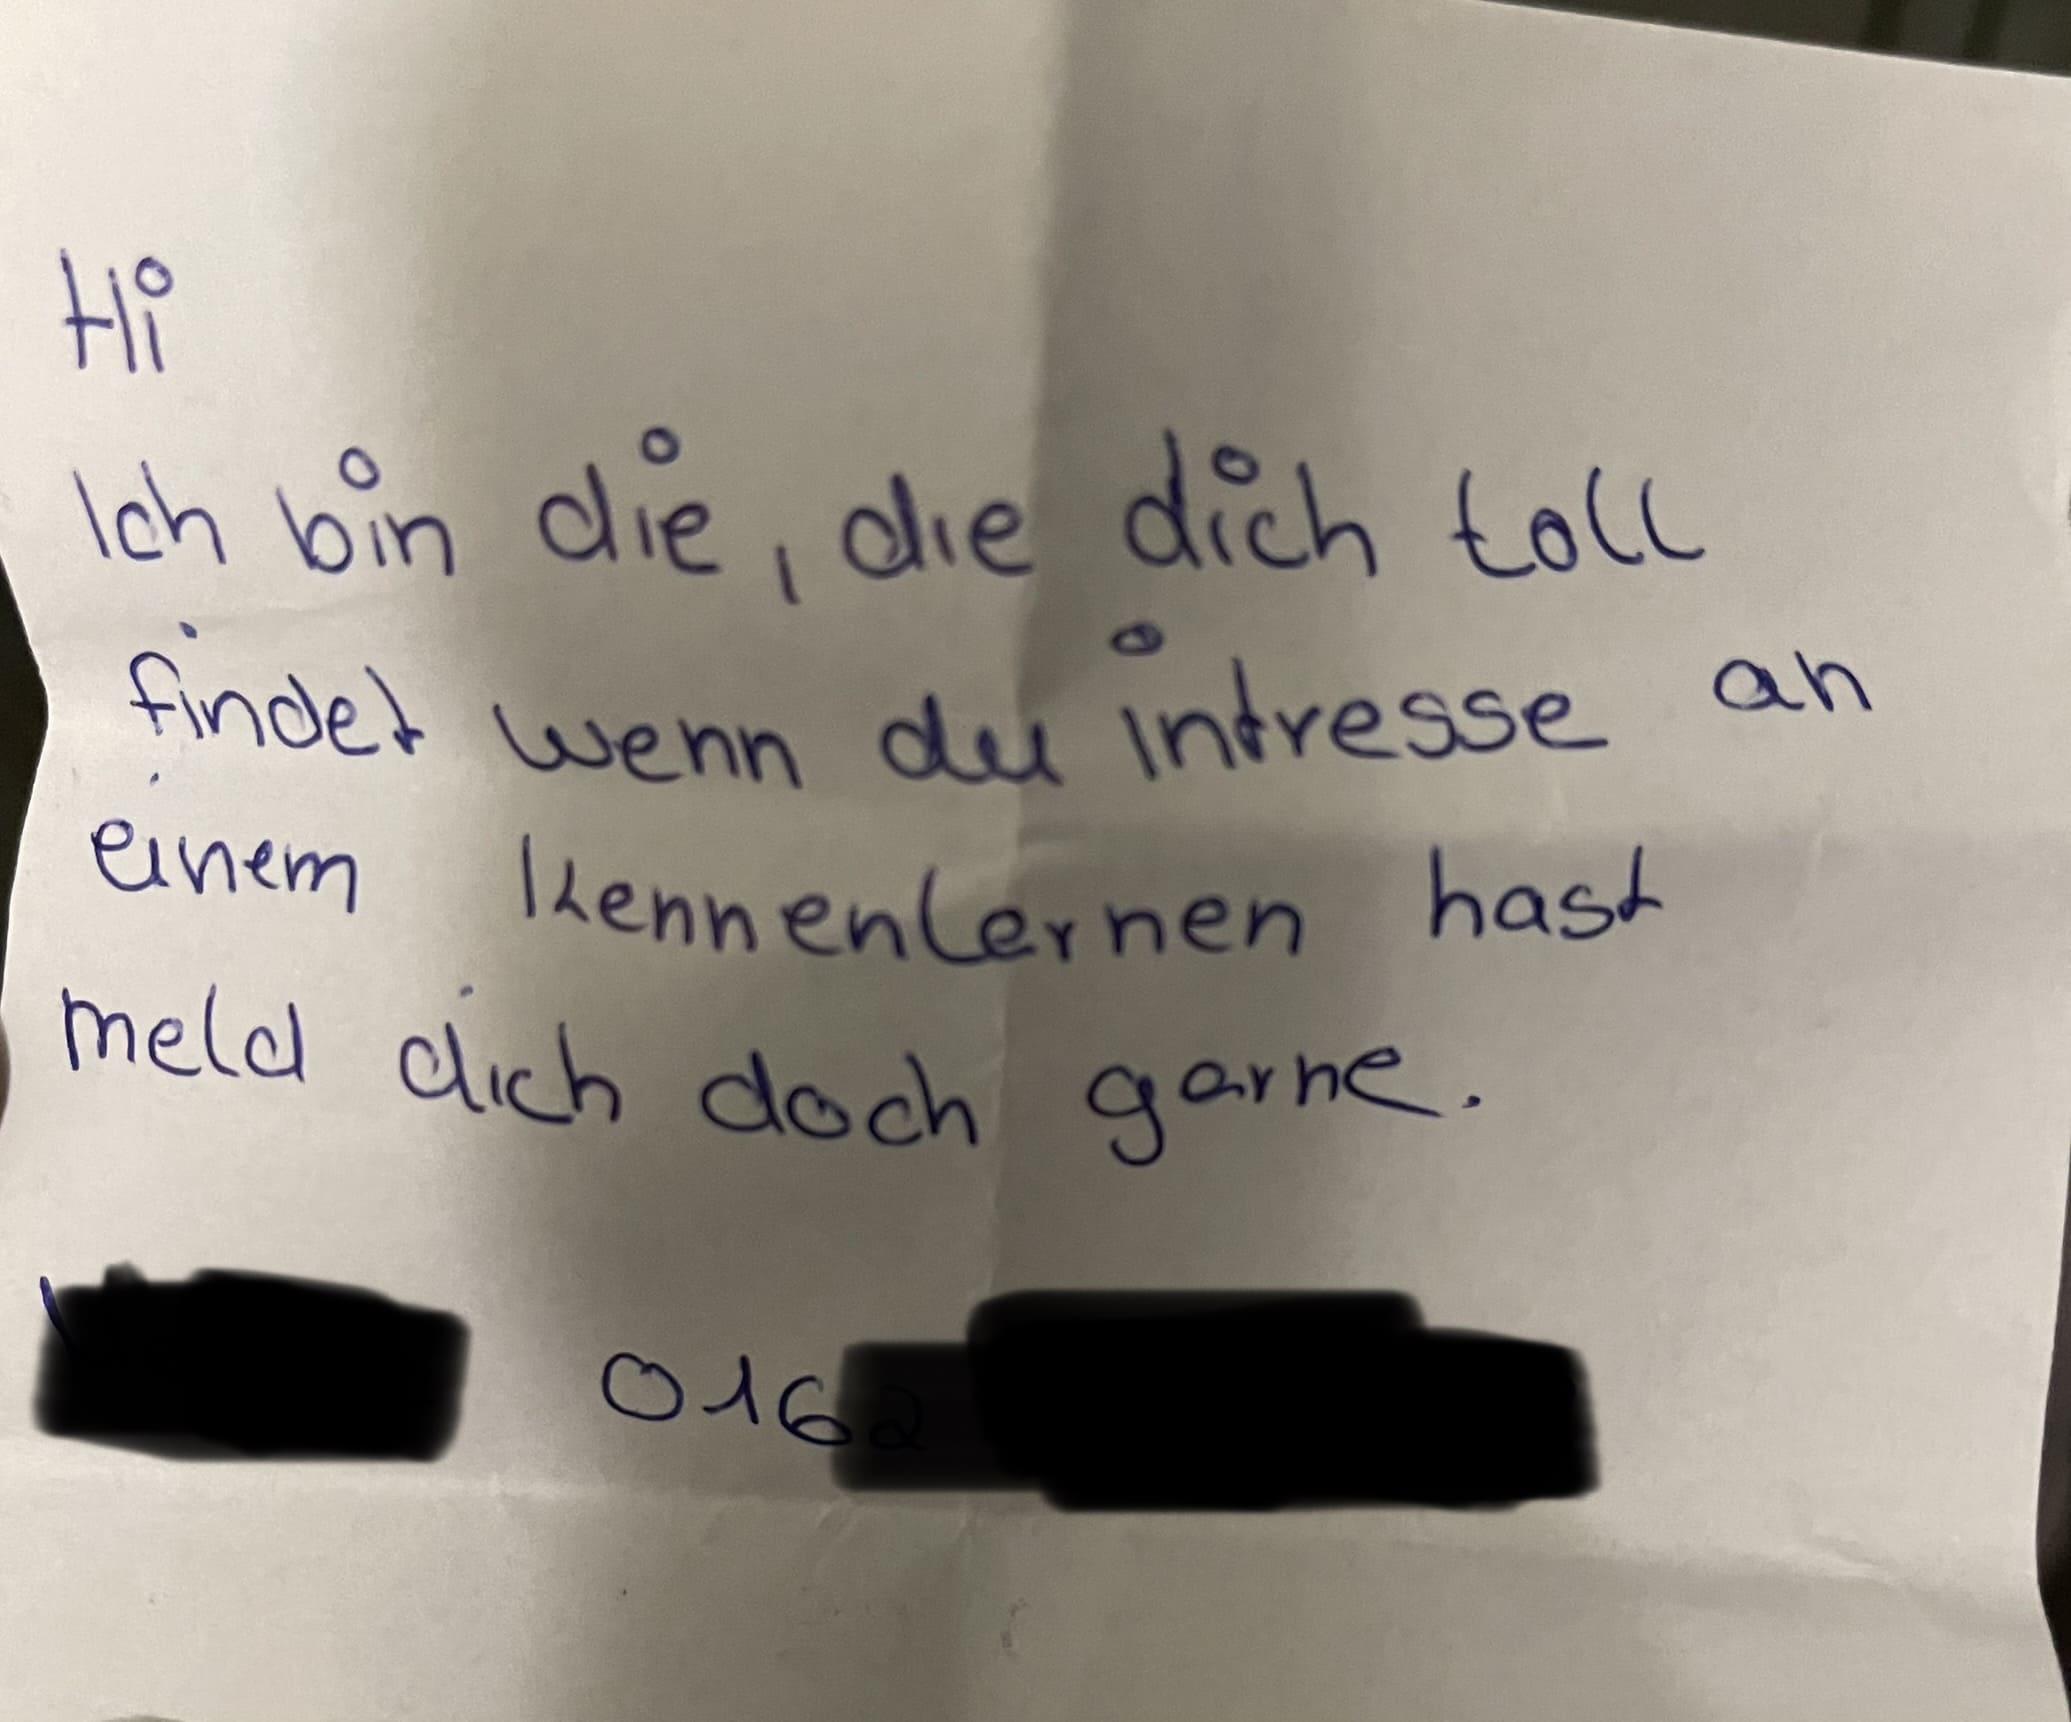 Hi
Ich bin die, die dich toll
findet wenn du intresse an
einem Kennenlernen hast
meld dich doch garne.
016